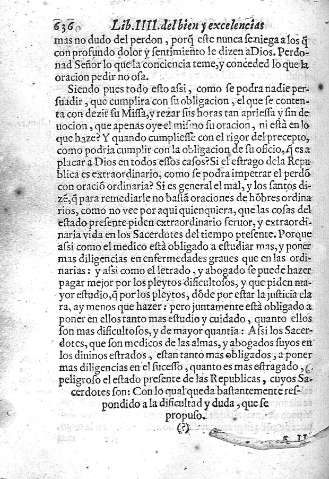 636 Lib.IIII. del bien y excelencias
mas no dudel del perdon, porq̃ este nunca se niega a los q̃
con profundo dolor y sentimiẽto le dizen a Dios. Perdo-
nad Señor lo que la conciencia teme, y conceded lo que la
oracion pedir no osa.
Siendo pues todo esto assi, como se podra nadie per-
suadir, que cumplira con su obligacion, el que se conten-
ta con dezir su Missa, y rezar sus horas tan apriessa y sin de-
uocion, que apenas oye el mismo su oracion, ni està en lo
que haze? Y quando cumpliesse con el rigor del precepto,
como podria cumplir con la obligacion de su oficio, q̃ es a-
placar a Dios en todos essos casos? Si el estrago de la Repu
blica es extraordinario, como se podra impetrar el perdõ
con oraciõ ordinaria? Si es general el mal, y los santos di-
zẽ, q̃ para remediarle no bastã oraciones de hõbres ordina
rios, como no vee por aqui quienquiera, que las cosas del
estado presente piden extraordinario feruor, y extraordi-
naria vida en los Sacerdotes del tiempo presente. Porque
assi como el medico està obligado a estudiar mas, y poner
mas diligencias en enfermedades graues que en las ordi-
narias: y assi como el letrado, y abogado se puede hazer
pagar mejor por los pleytos dificultosos, y que piden ma-
yor estudio, q̃ por los pleytos, dõde por estar la justicia cla
ra, ay menos que hazer: pero juntamente està obligado a
poner en ellos tanto mas estudio y cuidado, quanto ellos
son mas dificultosos, y de mayor quantia: Assi los Sacer-
dotes, que son medicos de las almas, y abogados suyos en
los diuinos estrados, estan tanto mas obligados, a poner
mas diligencias en el sucesso, quanto es mas estragado,
peligroso el estado presente de las Republicas, cuyos Sa-
cerdotes son: Con lo qual queda bastantemente res-
pondido a la dificultad y duda, que se
propuso.
(?)